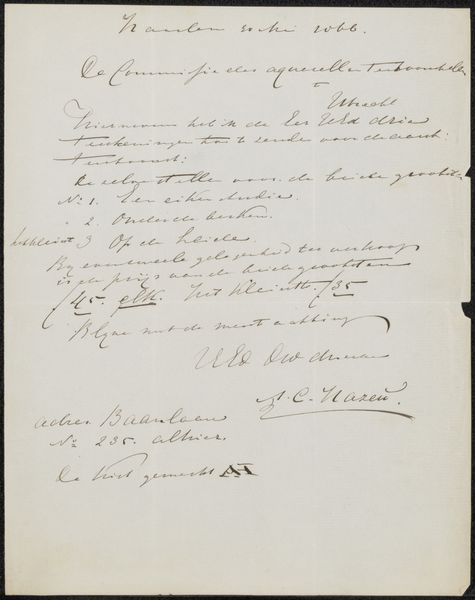 Haarlem 1866.
De Commissie der aquarellen tentoonstelling
Utrecht
Hiernevens heb ik de Eer UEd drie
teekeningen toe te zenden voor de aanst:
tentoonst:
De zelve stellen voor. de beide grootste
No 1. Een eiken studie.
" 2. Onder de berken.
het kleinst 3 Op de heide.
By eventueele gelegenheid tot verkoop
is de prijs van de beide grootsten
f 45. elk. het kleinste. f 35
Blyve met de meest achting
UEd Dw dienaar
C. Hazeu.
adres Baanlaan
No 235. alhier.
De kist gemerkt